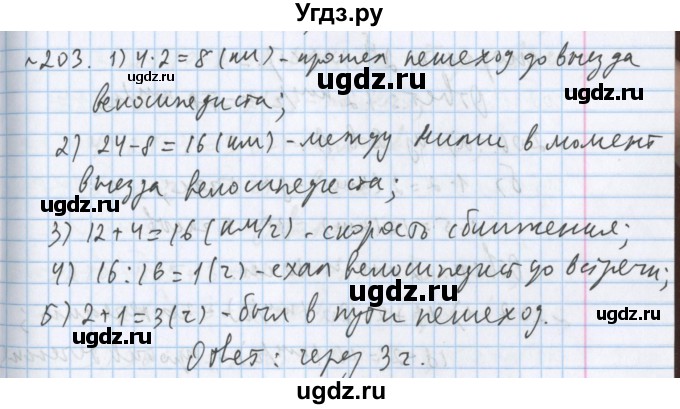 Угдз.ру
№203. 1) 4·2=8 (км) - прошел пешеход до выезда
велосипедиста;
2) 24-8=16 (км) - между ними в момент
выезда велосипедиста;
3) 12+4=16 (км/г) - скорость сближения;
4) 16:16=1 (г) - ехал велосипедист до встречи;
5) 2+1=3 (г) - был в пути пешеход.
Ответ: через 3 г.
ugdz.ru
ugdz.ru
ugdz.ru
ugdz.ru
ugdz.ru
ugdz.ru
ugdz.ru
ugdz.ru
ugdz.ru
ugdz.ru